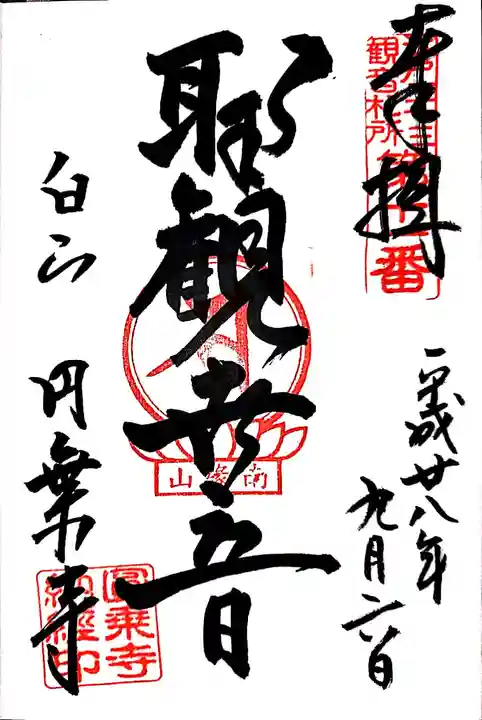 奉拝
観音札所
番
平成廿八年
九月二八日
聖観世音
南縁山
白山
円乗寺
圓乗寺
納経印